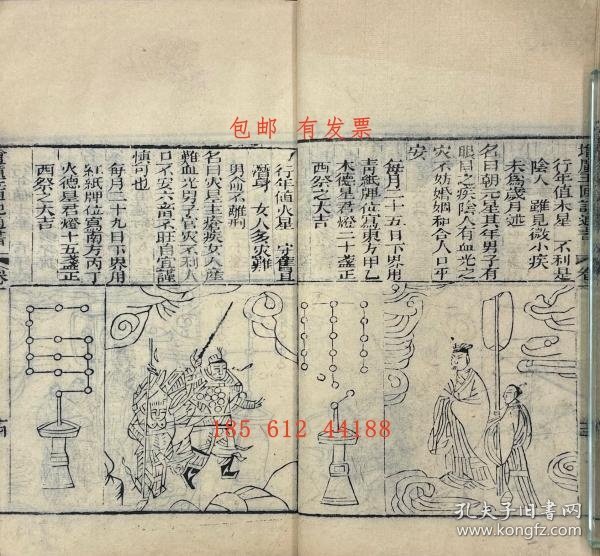 包邮 有发票
行年值木星 不利是
陰人 雖見微小疾
未為歲月迍
名曰朝元星其年男子有
眼目之疾陰人有血光之
灾不妨婚姻和合人口平
安
每月二十五日下界用
青紙牌位寫東方甲乙
木德星君燈二十盞正
西祭之大吉
行年值火星
曆身 女人多灾難
男命不離刑
名曰火星主瘡疾女人產
難血光男子官灾不利人
口不安六畜不旺自宜謹
慎可也
每月二十九日下界用
紅紙牌位寫南方丙丁
火德星君燈十五盞正
西祭之大吉
185 612 44188
孔夫子旧书网
www.kongfz.com